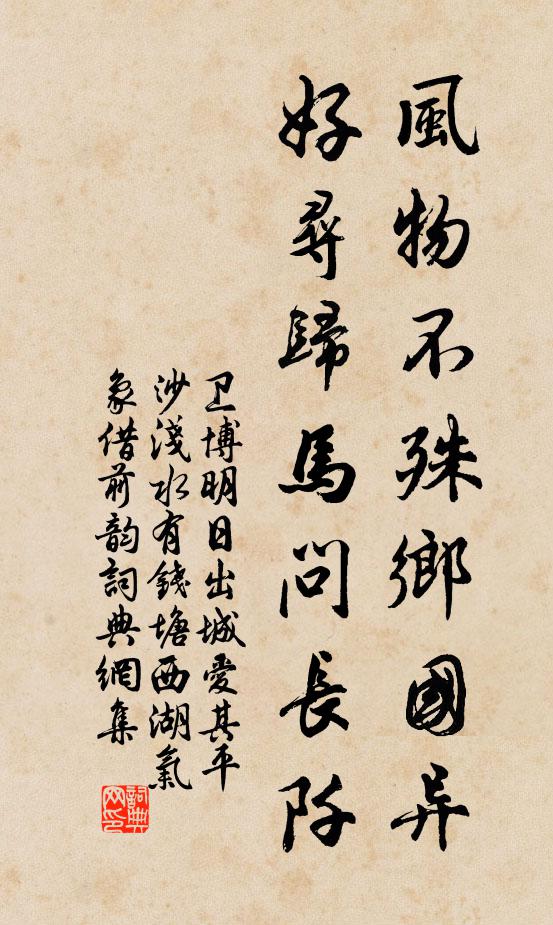 風物不殊鄉國异
好尋歸馬問長阡
卫博明日出城愛其平
沙淺水有錢塘西湖氣
象借前韵詞典網集
詞典网印